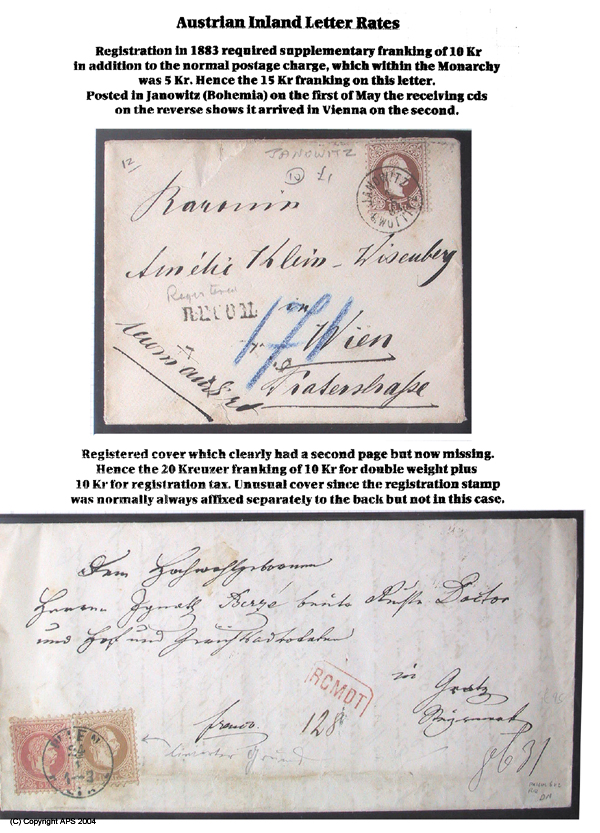 Austrian Inland Letter Rates
Registration in 1883 required supplementary franking of 10 Kr
in addition to the normal postage charge, which within the Monarchy
was 5 Kr. Hence the 15 Kr franking on this letter.
Posted in Janowitz (Bohemia) on the first of May the receiving cds
on the reverse shows it arrived in Vienna on the second.
12/
JANOWITZ
10
JANOWITZ
Baronin
Amélie Klein-Wisenberg
Registered
RECOM
in
171
Wien
Praterstraße
Registered cover which clearly had a second page but now missing.
Hence the 20 Kreuzer franking of 10 Kr for double weight plus
10 Kr for registration tax. Unusual cover since the registration stamp
was normally always affixed separately to the back but not in this case.
Dem Hochwohlgebornen
Herrn Ignatz Doctor
und Hof und
in Gratz
RCMDT
franco
128
WIEN
(C) Copyright APS 2004